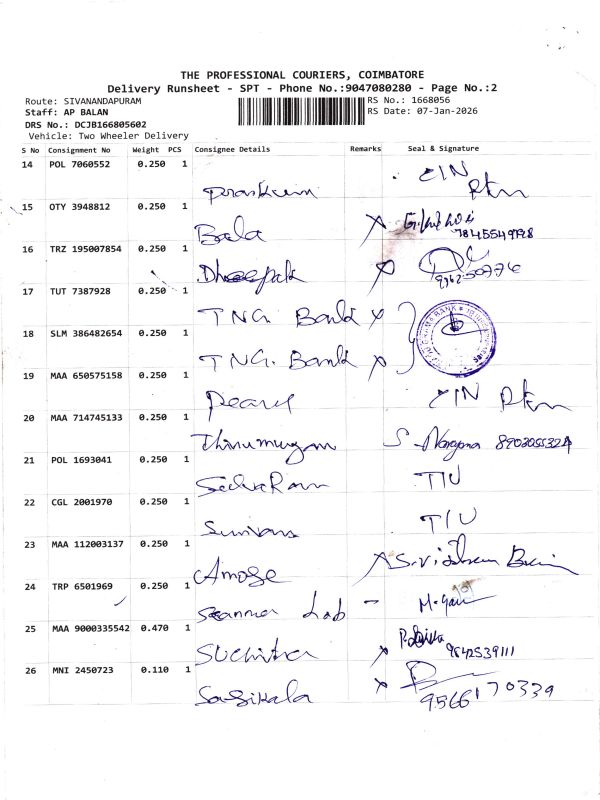 THE PROFESSIONAL COURIERS, COIMBATORE
Delivery Runsheet - SPT - Phone No.:9047080280 - Page No.:2
Route: SIVANANDAPURAM RS No.: 1668056
Staff: AP BALAN RS Date: 07-Jan-2026
DRS No.: DCJB166805602
Vehicle: Two Wheeler Delivery
S No Consignment No Weight PCS Consignee Details Remarks Seal & Signature
14 POL 7060552 0.250 1
15 OTY 3948812 0.250 1
Bala 7845549198
16 TRZ 195007854 0.250 1
Dheepak
17 TUT 7387928 0.250 1
TNG Bank x
18 SLM 386482654 0.250 1
TNG. Bank x
19 MAA 650575158 0.250 1
Pearl
20 MAA 714745133 0.250 1
Thirumurgan
21 POL 1693041 0.250 1
SelvaRam T/U
22 CGL 2001970 0.250 1
T/U
23 MAA 112003137 0.250 1
Amose
24 TRP 6501969 0.250 1
Scanner Lab -
25 MAA 9000335542 0.470 1
Suchitra x 9842539111
26 MNI 2450723 0.110 1
Sasikala x 9566170339